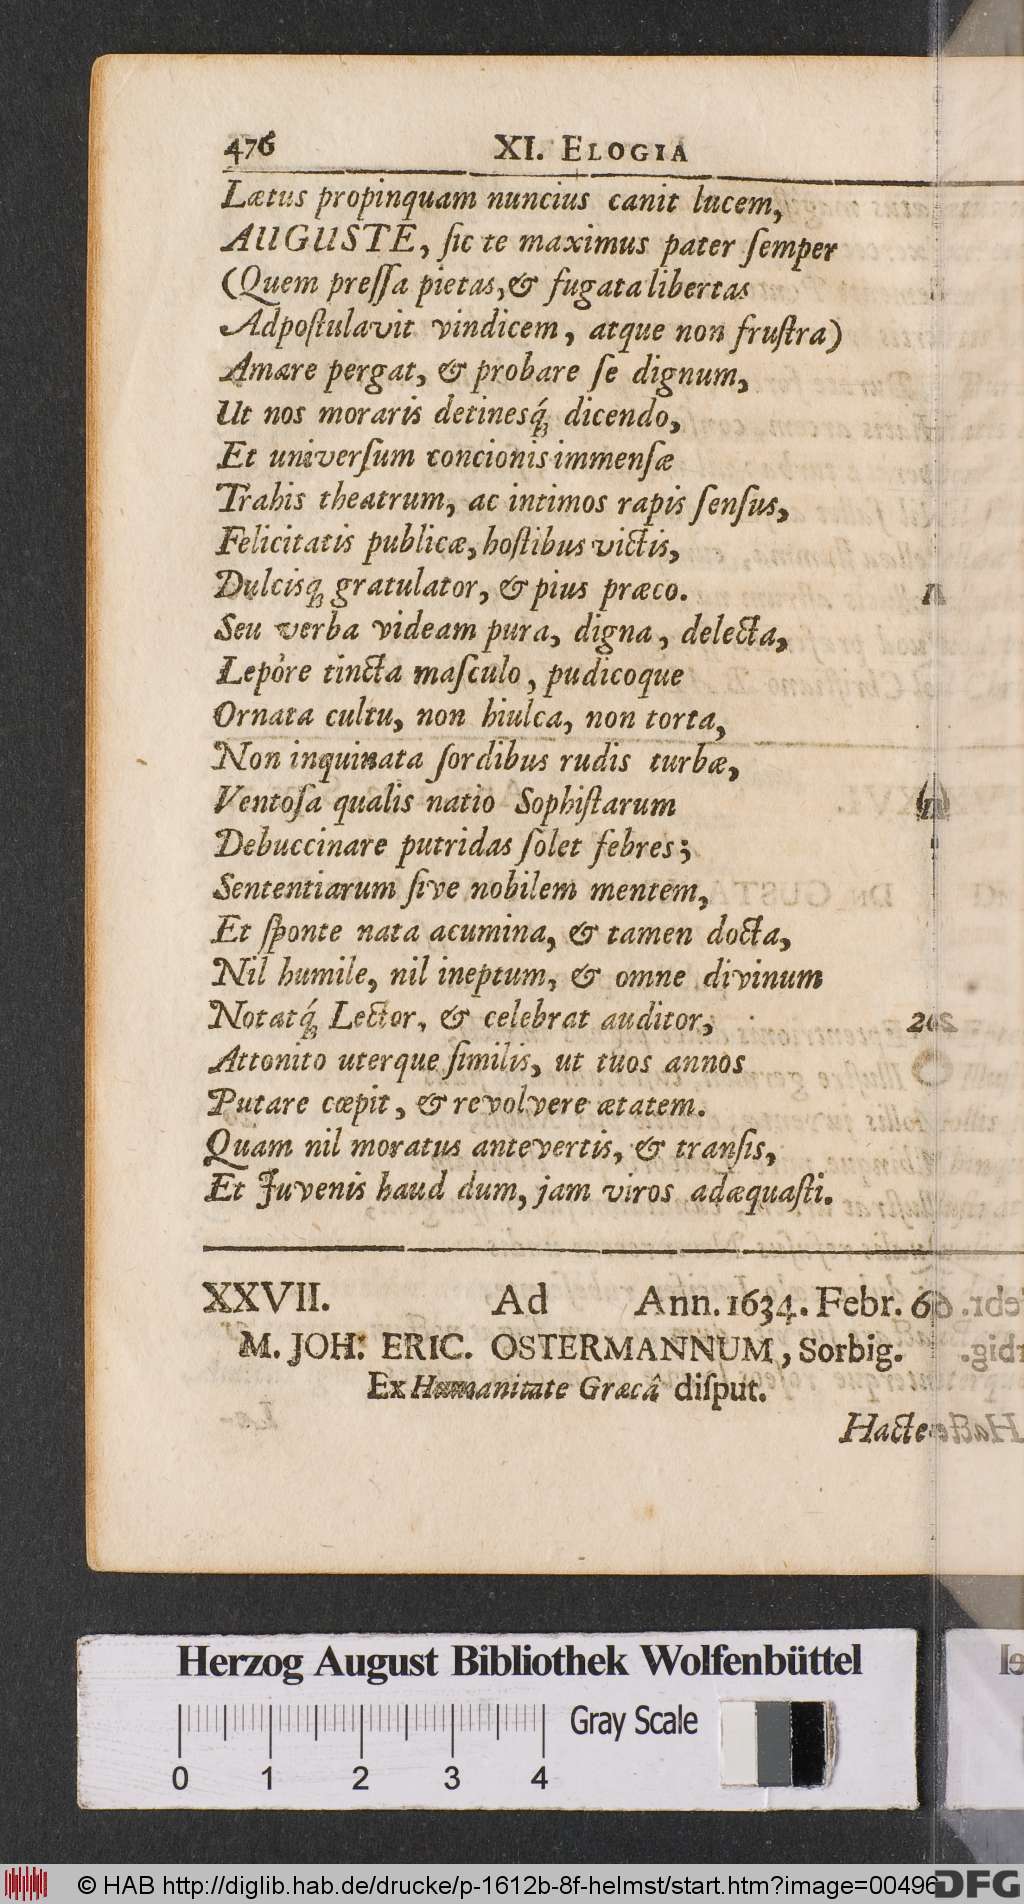 476 XI. ELOGIA
Lætus propinquam nuncius canit lucem,
AUGUSTE, ſic te maximus pater ſemper
(Quem preſſa pietas, & fugata libertas
Adpoſtulavit vindicem, atque non fruſtra)
Amare pergat, & probare ſe dignum,
Ut nos moraris detinesq́; dicendo,
Et univerſum concionis immenſæ
Trahis theatrum, ac intimos rapis ſenſus,
Felicitatis publicæ, hoſtibus victis,
Dulcisq; gratulator, & pius præco.
Seu verba videam pura, digna, delecta,
Lepôre tincta maſculo, pudicoque
Ornata cultu, non hiulca, non torta,
Non inquinata ſordibus rudis turbæ,
Ventoſa qualis natio Sophiſtarum
Debuccinare putridas ſolet febres;
Sententiarum ſive nobilem mentem,
Et ſponte nata acumina, & tamen docta,
Nil humile, nil ineptum, & omne divinum
Notatq́; Lector, & celebrat auditor,
Attonito uterque ſimilis, ut tuos annos
Putare cœpit, & revolvere ætatem.
Quam nil moratus antevertis, & tranſis,
Et Juvenis haud dum, jam viros adæquaſti.
XXVII. Ad Ann. 1634. Febr. 6
M. JOH. ERIC. OSTERMANNUM, Sorbig.
Ex Humanitate Græcâ diſput.
Hacte-
Herzog August Bibliothek Wolfenbüttel
Gray Scale
0 1 2 3 4
© HAB http://diglib.hab.de/drucke/p-1612b-8f-helmst/start.htm?image=00496
DFG